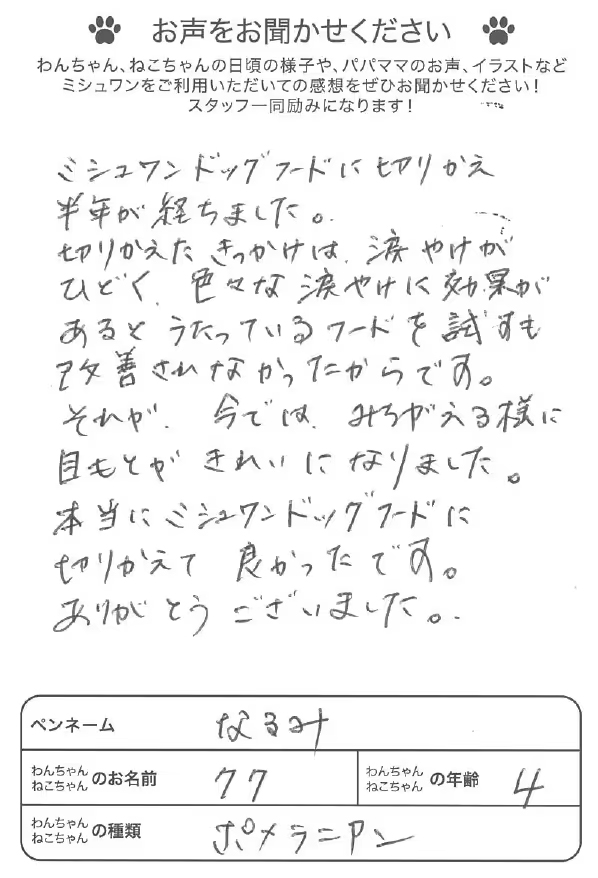 お声をお聞かせください
わんちゃん、ねこちゃんの日頃の様子や、パパママのお声、イラストなど
ミシュワンをご利用いただいての感想をぜひお聞かせください！
スタッフ一同励みになります！
ミシュワンドッグフードに切りかえ
半年が経ちました。
切りかえたきっかけは、涙やけが
ひどく、色々な涙やけに効果が
あるとうたっているフードを試すも
改善されなかったからです。
それが、今では、みちがえる様に
目もとがきれいになりました。
本当にミシュワンドッグフードに
切りかえて良かったです。
ありがとうございました。
ペンネーム なるみ
わんちゃん ねこちゃん のお名前 クク わんちゃん ねこちゃん の年齢 4
わんちゃん ねこちゃん の種類 ポメラニアン